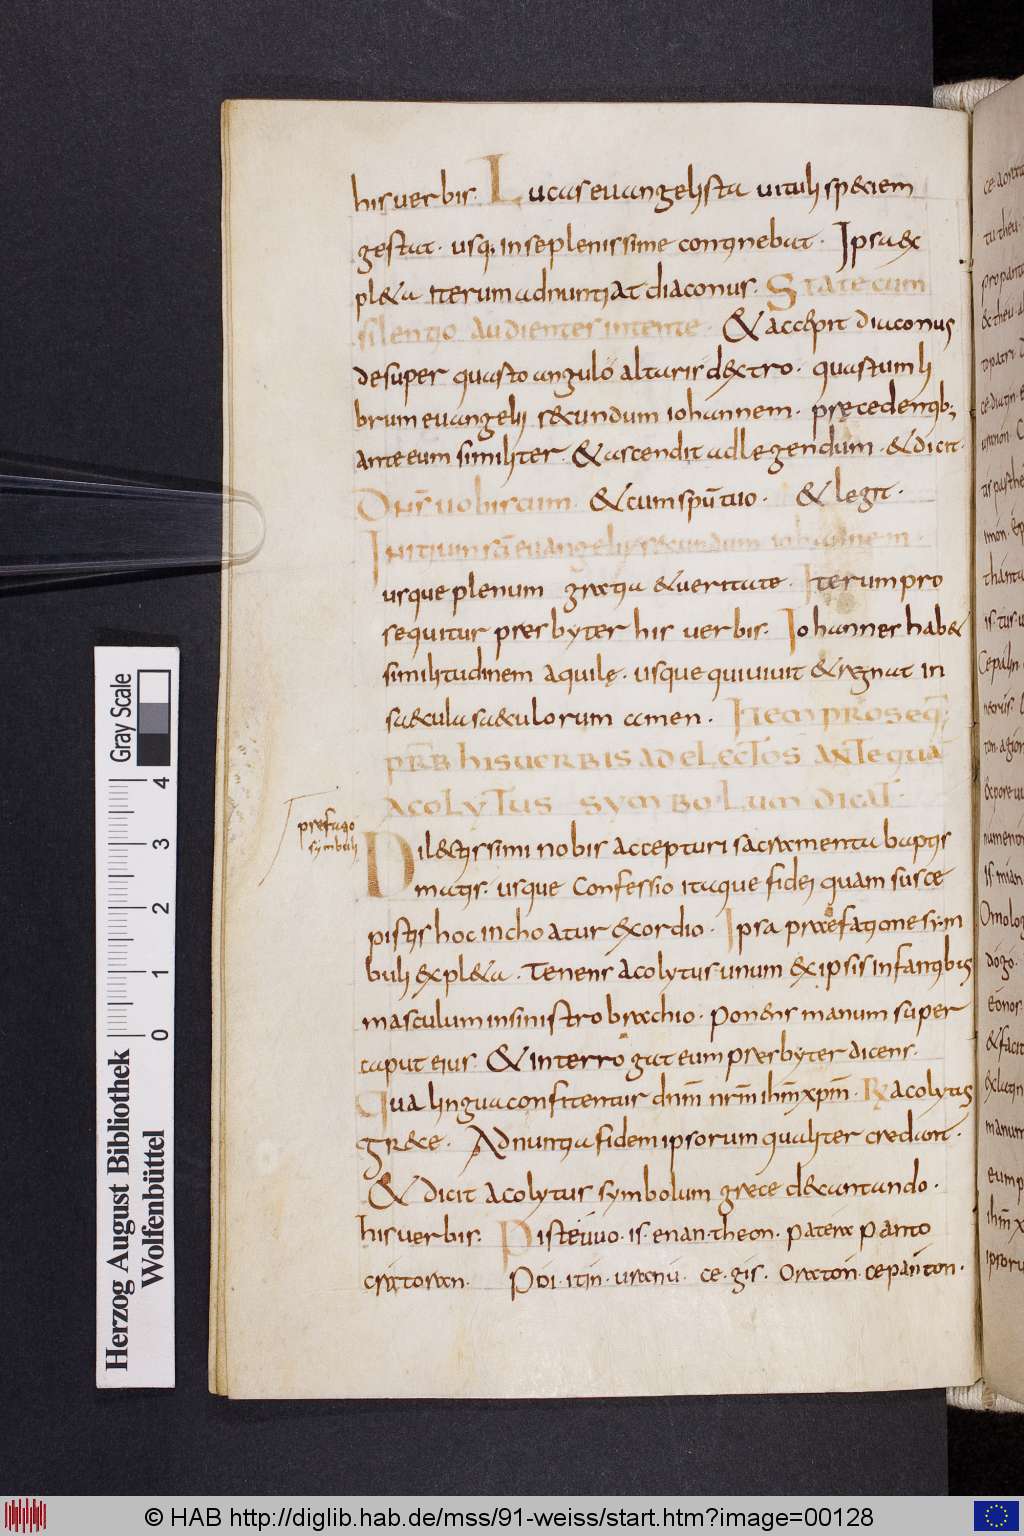 his uerbis. Lucas euangelista uituli sp&ciem
gestat. usq; inse plenissime continebat. Ipsa ex
pl&a iterum adnuntiat diaconus. State cum
silentio audientes intente. & accepit diaconus
desuper quarto angulo altaris dextro. quartum li
brum euangelii secundum iohannem. pręcedentib;
ante eum similiter. & ascendit ad legendum. & dicit.
Dn̄s uobiscum. & cum spū tuo. & legit.
Initium sc̄i euangelii secundum iohannem.
usque plenum gratia & ueritate. Iterum pro
sequitur presbyter his uerbis. Iohannes hab&
similitudinem aquilę. usque qui uiuit & regnat in
saecula saeculorum amen. Item proseq̄
pr̄b his uerbis ad electos antequā
acolytus symbolum dicat.
prefatio
symboli
Dil&issimi nobis accepturi sacramenta baptis
matis. usque Confessio itaque fidei quam susce
pistis hoc inchoatur exordio. Ipsa praefatione sym
buli expl&a. Tenens acolytus unum ex ipsis infantibus
masculum in sinistro brachio. ponens manum super
caput eius. & interrogat eum presbyter dicens.
Qua lingua confitentur dn̄m nr̄m ih̄m xp̄m. R acolytus
gr&e. Adnuntia fidem ipsorum qualiter credant.
& dicit acolytus symbolum grece decantando.
his uerbis. Pisteuuo. is. enan. theon. patera panto
cratoran. Poi. itin. uranu. ce. gis. Oraton. ce panton.
Gray Scale
4
3
2
1
0
Herzog August Bibliothek
Wolfenbüttel
© HAB http://diglib.hab.de/mss/91-weiss/start.htm?image=00128